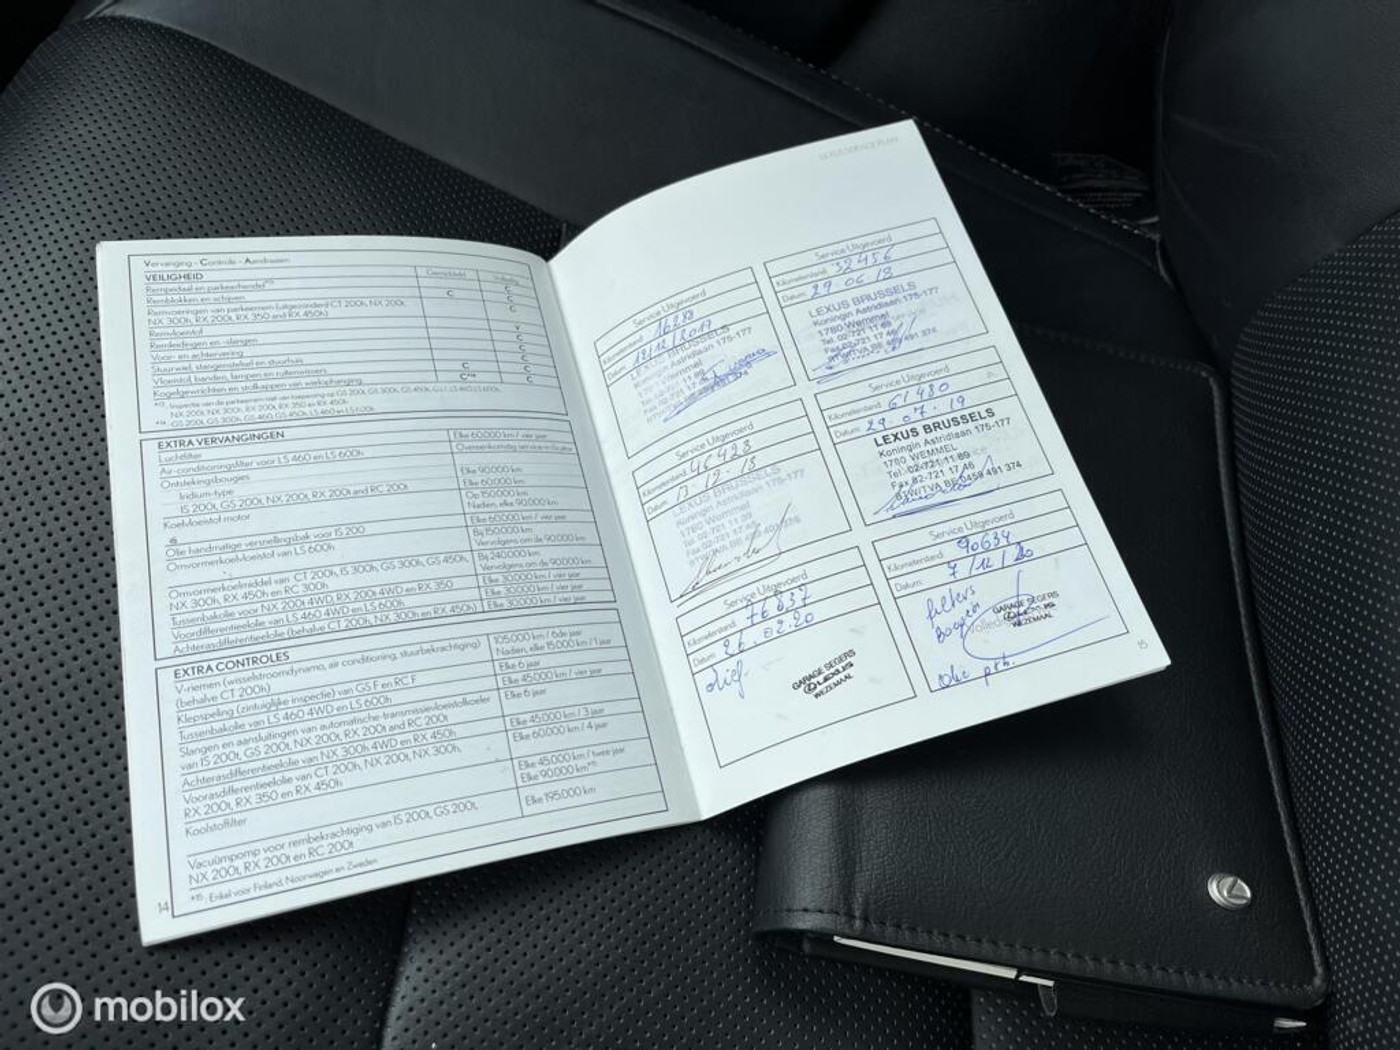 Vervanging - Controle - Aandraaien
VEILIGHEID
Gemiddeld
Volledig
Rempedaal en parkeerhendel
C
Remblokken en schijven
C
C
Remvoeringen van parkeerrem (uitgezonderd CT 200h, NX 200t,
NX 300h, RX 200t, RX 350 and RX 450h)
C
Remvloeistof
V
Remleidingen en -slangen
C
Voor- en achtervering
C
Stuurwiel, stangenstelsel en stuurhuis
C
Vloeistof, banden, lampen en ruitenwissers
C
C
Kogelgewrichten en stofkappen van wielophanging
C
C
EXTRA VERVANGINGEN
Luchtfilter
Elke 60.000 km / vier jaar
Air-conditioningsfilter voor LS 460 en LS 600h
Overeenkomstig service-indicator
Ontstekingsbougies
Iridium-type
Elke 90.000 km
IS 200t, GS 200t, NX 200t, RX 200t and RC 200t
Elke 60.000 km
Koelvloeistof motor
Op 150.000 km
Naden, elke 90.000 km
Olie handmatige versnellingsbak voor IS 200
Elke 60.000 km / vier jaar
Omvormerkoelvloeistof van LS 600h
Bij 150.000 km
Vervolgens om de 90.000 km
Omvormerkoelmiddel van CT 200h, IS 300h, GS 300h, GS 450h,
NX 300h, RX 450h en RC 300h
Bij 240.000 km
Vervolgens om de 90.000 km
Tussenbakolie voor NX 200t 4WD, RX 200t 4WD en RX 350
Elke 30.000 km / vier jaar
Voordifferentieelolie van LS 460 4WD en LS 600h
Elke 30.000 km / vier jaar
Achterasdifferentieelolie (behalve CT 200h, NX 300h en RX 450h)
Elke 30.000 km / vier jaar
EXTRA CONTROLES
V-riemen (wisselstroomdynamo, air conditioning, stuurbekrachtiging)
(behalve CT 200h)
105.000 km / 6de jaar
Naden, elke 15.000 km / 1 jaar
Klepspeling (zintuiglijke inspectie) van GS F en RC F
Elke 6 jaar
Tussenbakolie van LS 460 4WD en LS 600h
Elke 45.000 km / vier jaar
Slangen en aansluitingen van automatische-transmissievloeistofkoeler
van IS 200t, GS 200t, NX 200t, RX 200t and RC 200t
Elke 6 jaar
Achterasdifferentieelolie van NX 300h 4WD en RX 450h
Elke 45.000 km / 3 jaar
Voorasdifferentieelolie van CT 200h, NX 200t, NX 300h,
RX 200t, RX 350 en RX 450h
Elke 60.000 km / 4 jaar
Koolstoffilter
Elke 45.000 km / twee jaar
Elke 90.000 km*15
Vacuümpomp voor rembekrachtiging van IS 200t, GS 200t,
NX 200t, RX 200t en RC 200t
Elke 195.000 km
*15: Enkel voor Finland, Noorwegen en Zweden
14
LEXUS SERVICE PLAN
Service Uitgevoerd
Kilometerstand: 16288
Datum: 12/12/2017
LEXUS BRUSSELS
Koningin Astridlaan 175-177
1780 Wemmel
Service Uitgevoerd
Kilometerstand: 32456
Datum: 29 06 18
LEXUS BRUSSELS
Koningin Astridlaan 175-177
1780 Wemmel
Tel. 02-721 11 89
Fax 02-721 17 46
BTW/TVA BE 0459 491 374
Service Uitgevoerd
Kilometerstand: 46423
Datum: 17-12-18
LEXUS BRUSSELS
Koningin Astridlaan 175-177
1780 Wemmel
Service Uitgevoerd
Kilometerstand: 61480
Datum: 29-07-19
LEXUS BRUSSELS
Koningin Astridlaan 175-177
1780 WEMMEL
Tel. 02-721 11 89
Fax 02-721 17 46
BTW/TVA BE 0459 491 374
Service Uitgevoerd
Kilometerstand: 76837
Datum: 26.02.20
GARAGE SEGERS
LEXUS
WEZEMAAL
Service Uitgevoerd
Kilometerstand: 90634
Datum: 7/12/20
filters
Bougies
GARAGE SEGERS
LEXUS
WEZEMAAL
15
mobilox